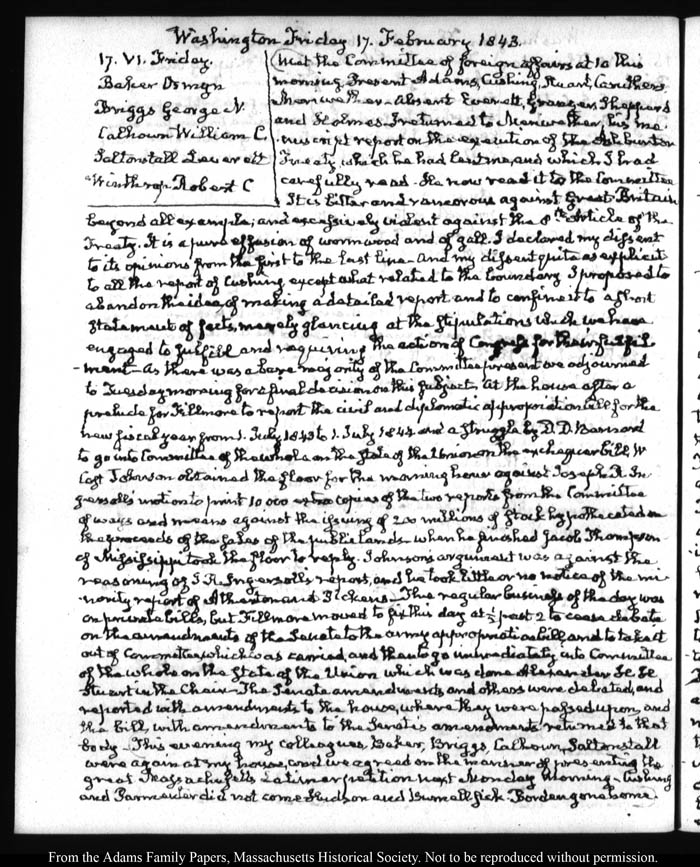 Washington Friday 17. February 1843.
17. VI. Friday.
Baker Osmyn
Briggs George N.
Calhoun William C.
Saltonstall Leverett
Winthrop Robert C
Met the Committee of foreign affairs at 10 this
morning. Present Adams, Cushing, Stuart, Caruthers
Meriwether. Absent Everett, Granger, Shepperd
and Holmes. I returned to Meriwether, his ma-
nuscript report on the execution of the Ashburton
Treaty, which he had lent me, and which I had
carefully read. He now read it to the Committee
It is bitter and rancorous against Great-Britain
beyond all example; and excessively violent against the 8th Article of the
Treaty. It is a pure effusion of wormwood and of gall. I declared my dissent
to its opinions from the first to the last line—and my dissent quite as explicit
to all the report of Cushing except what related to the boundary. I proposed to
abandon the idea of making a detailed report and to confine it to a short
statement of facts, merely glancing at the stipulations which we have
engaged to fulfill and requiring the action of Congress for their fulfil
-ment—As there was a bare majority of the Committee present we adjourned
to Tuesday morning for a final decision on this subject. At the house after a
prelude for Fillmore to report the civil and diplomatic appropriation bill for the
new fiscal year from 1. July 1843 to 1. July 1844 and a struggle by D. D. Barnard
to go into Committee of the whole on the state of the Union on the exchequer bill, W
Cost Johnson obtained the floor for the morning hour against Joseph R. In-
gersoll's motion to print 10 000 extra copies of the two reports from the Committee
of ways and means against the issuing of 200 millions of stock hypothecated on
the proceeds of the sales of the public lands. When he finished Jacob Thompson
of Mississippi took the floor to reply. Johnson's argument was against the
reasoning of J. R. Ingersoll's report, and he took little or no notice of the mi-
nority report of Atherton and Pickens—The regular business of the day was
on private bills, but Fillmore moved to fix this day at ½ past 2 to cease debate
on the amendments of the Senate to the army appropriation bill and to take it
out of Committee, which was carried, and then to go immediately into Committee
of the whole on the State of the Union which was done Alexander H. H.
Stuart in the Chair—The Senate amendments and others were debated, and
reported with amendments to the house, where they were passed upon, and
the bill, with amendments to the Senate's amendments returned to that
body—This evening my colleagues, Baker, Briggs, Calhoun, Saltonstall
were again at my house, and we agreed on the manner of presenting the
great Massachusetts Latimer petition next Monday Morning—Cushing
and Parmenter did not come. Hudson and Burnell sick. Borden gone home.
From the Adams Family Papers, Massachusetts Historical Society. Not to be reproduced without permission.